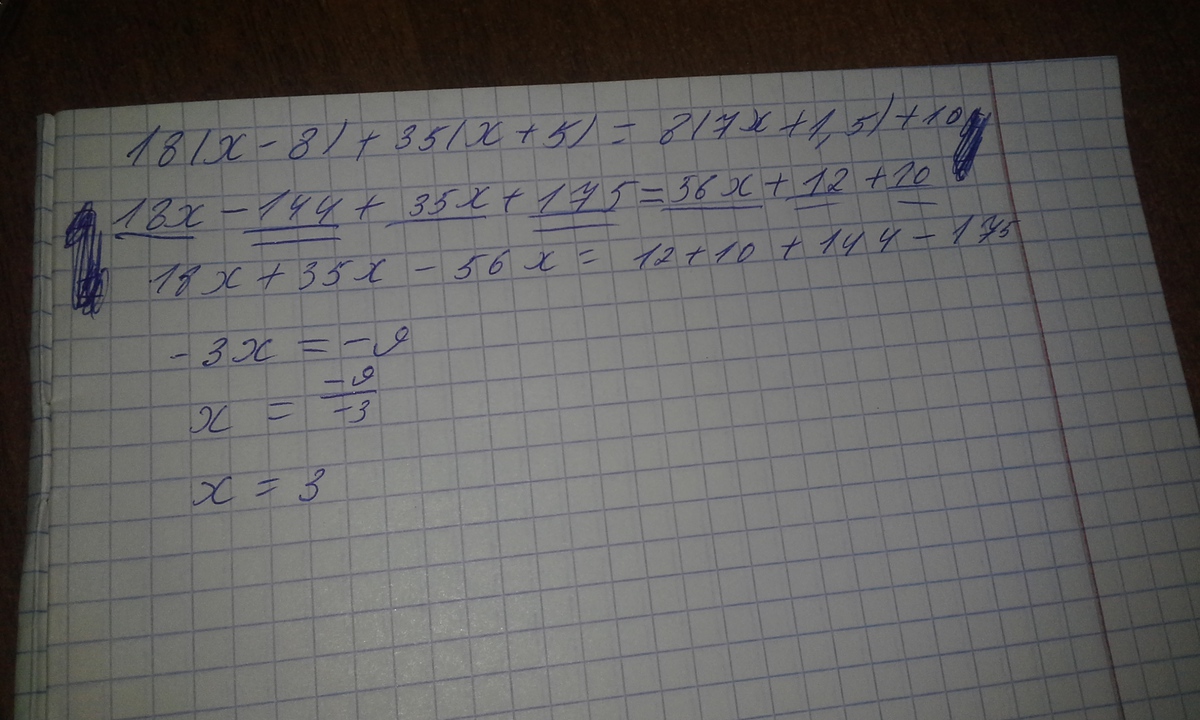 18(x-8)+35(x+5)=8(7x+1,5)+10
18x-144+35x+175=56x+12+10
18x+35x-56x=12+10+144-175
-3x=-9
x=\frac{-9}{-3}
x=3